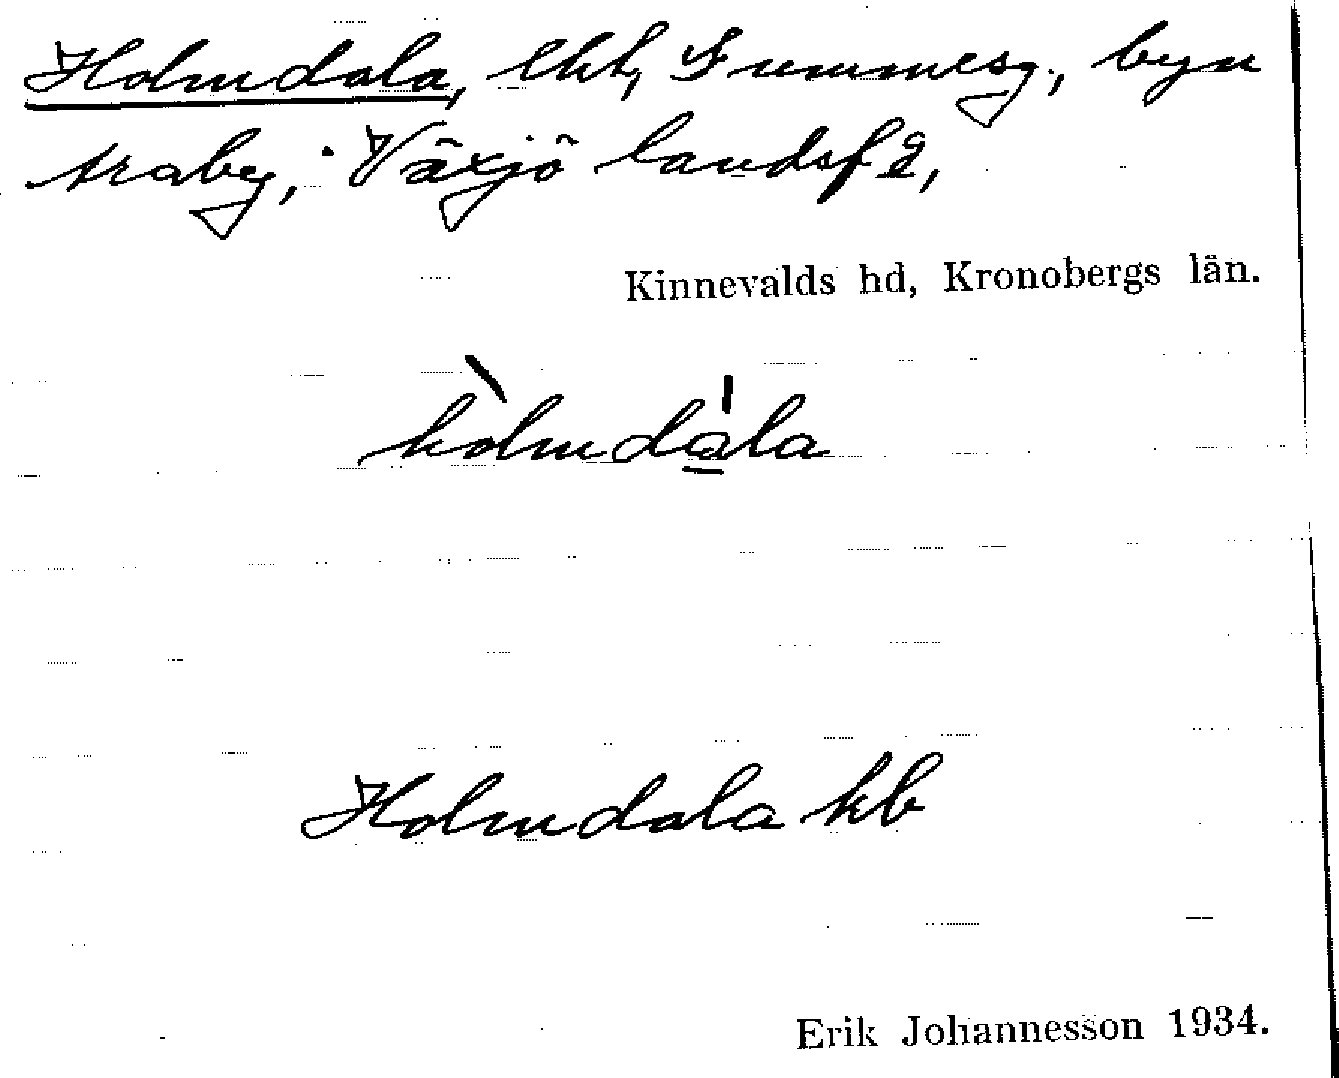 Holmdala, lht, Trummesg., byn
Araby, Växjö
Kinnevalds hd, Kronobergs län.
hòlmdála
Holmdala kb
Erik Johannesson 1934.